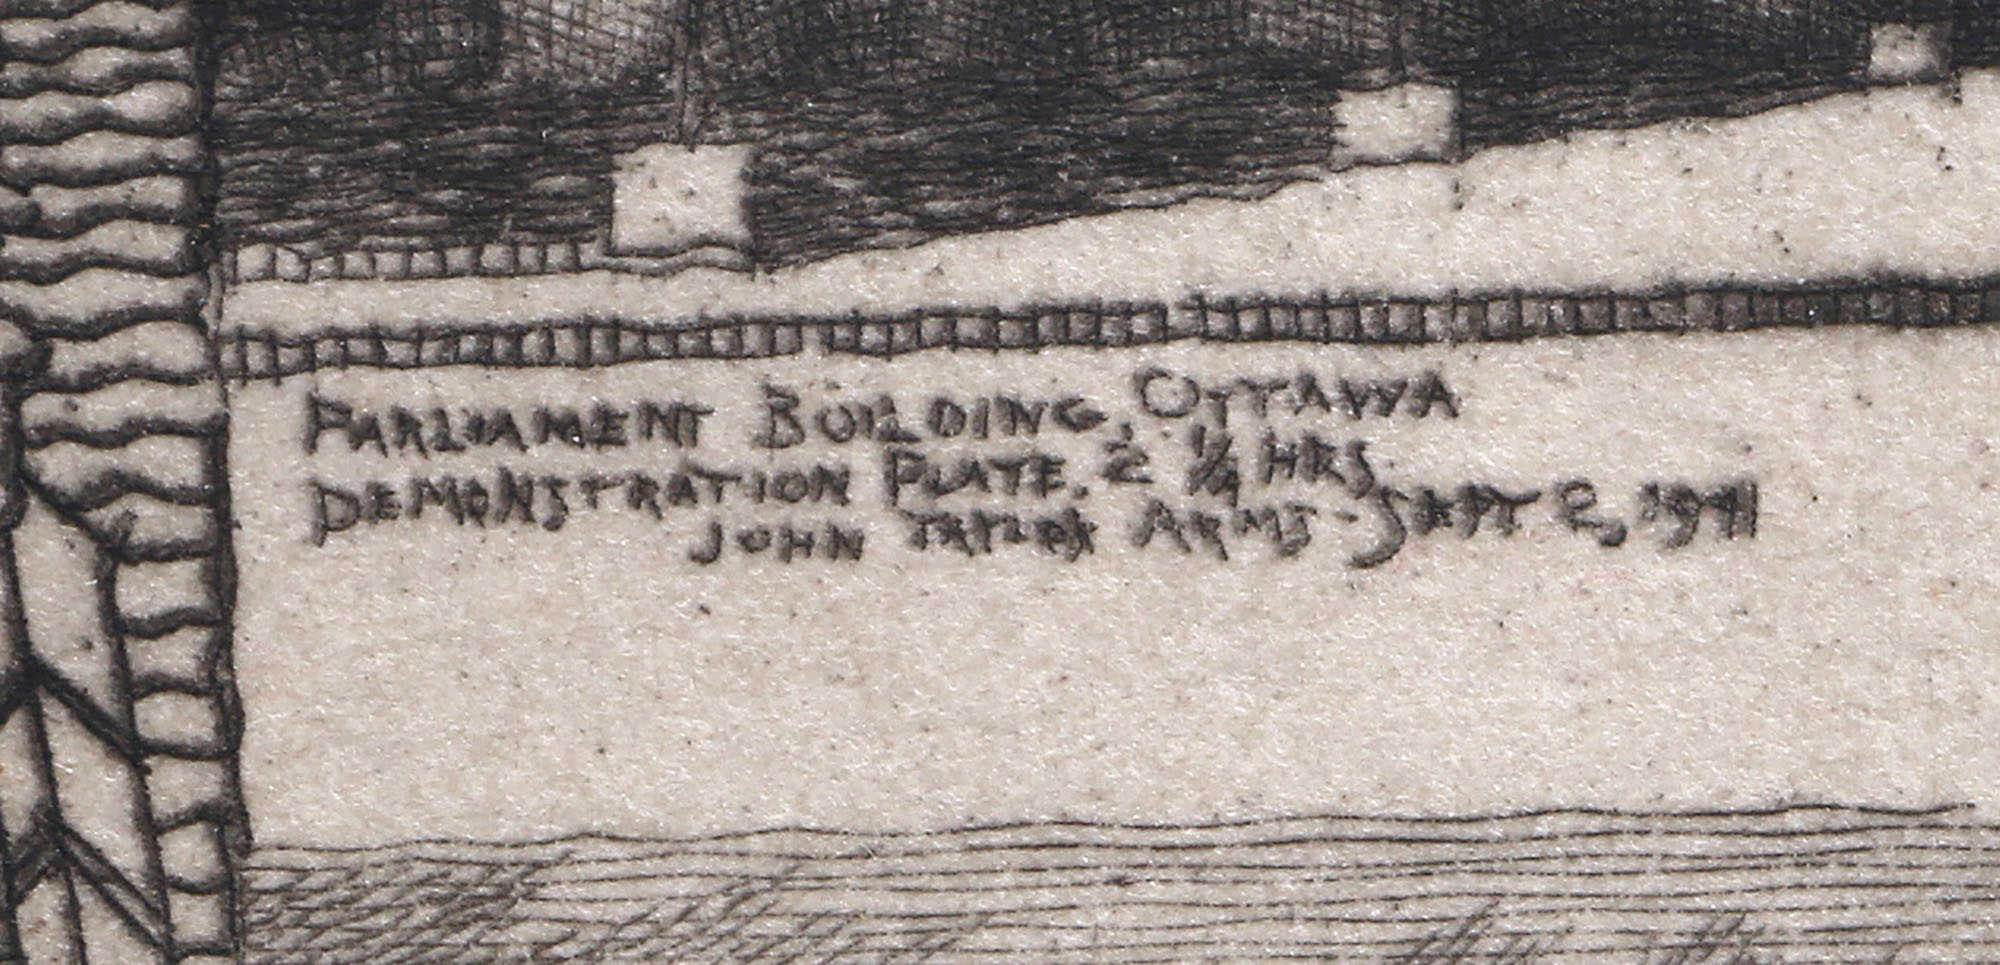 PARLIAMENT BUILDING, OTTAWA
DEMONSTRATION PLATE. 2 1/4 HRS.
JOHN TAYLOR ARMS - SEPT 2, 1941